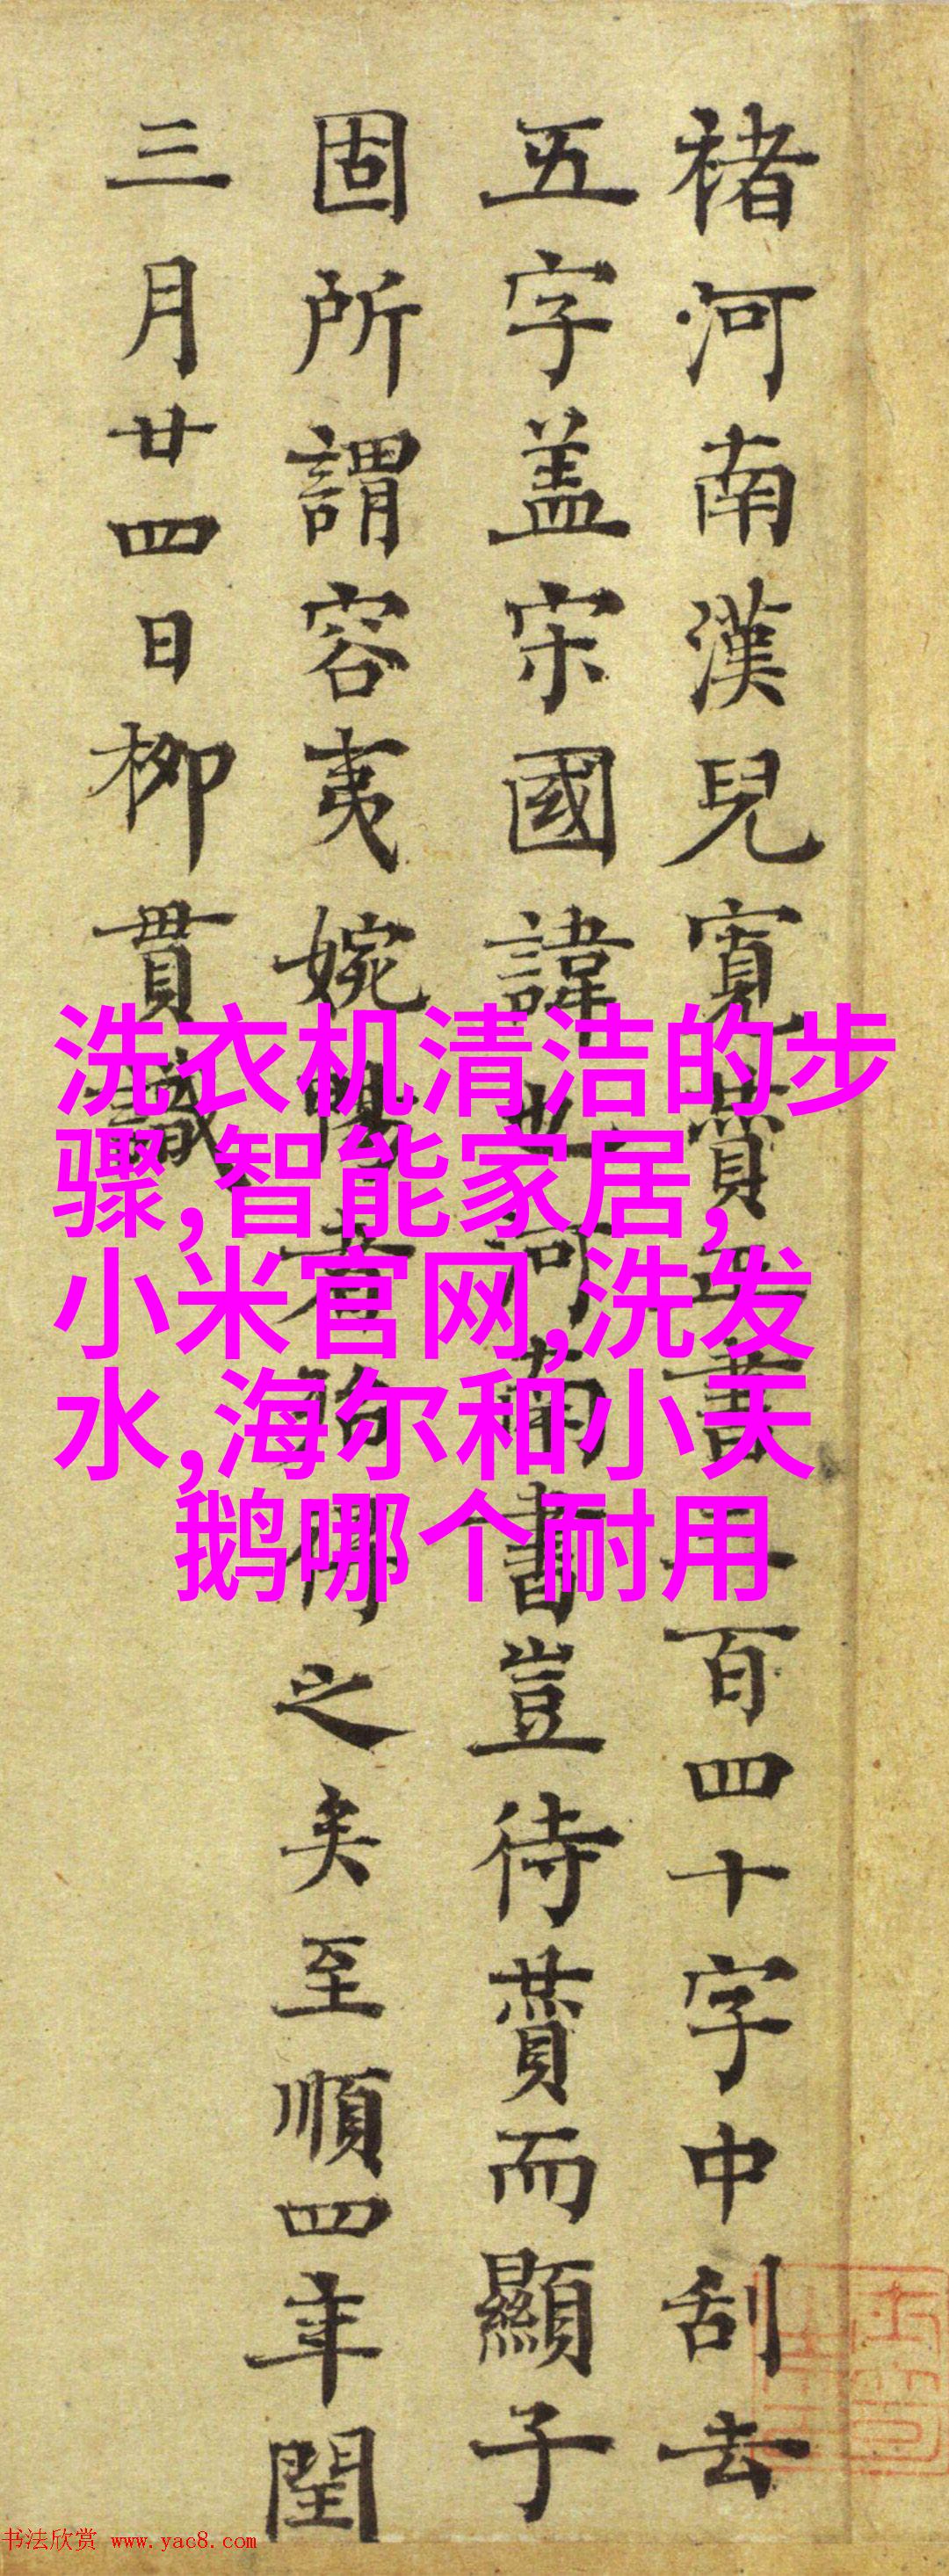 褚河南漢兒寬賛真書三百四十字中刮去
五字盖宋國諱也河南書豈待賛而顯子
固所謂容夷婉暢者髣髴之矣至順四年閏
三月廿四日柳貫識
洗衣机清洁的步
骤,智能家居,
小米官网,洗发
水,海尔和小天
鹅哪个耐用
书法欣赏 www.yac8.com